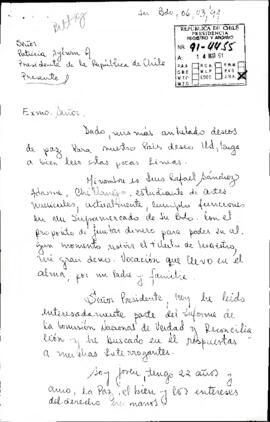 Sn Bdo, 06, 03, 91
REPUBLICA DE CHILE
PRESIDENCIA
REGISTRO Y ARCHIVO
NR. 91-4455
A: 14 MAR 91
Señor
Patricio Aylwin
Presidente de la República de Chile
Presente
Exmo. Señor.
Dado, mis más anhelado deseos
de paz para nuestro País deseo Ud, tenga
a bien leer estas pocas líneas.
Mi nombre es Luis Rafael Sánchez
estudiante de artes
musicales, actualmente, cumplo funciones
en un Supermercado de Sn Bdo. Con el
proposito de juntar dinero para poder en al-
gun momento rendir el Título de Maestro,
mi gran deseo. Vocación que llevo en el
alma, por mi Padre y familia.
Señor Presidente, hoy he leído
interesadamente parte del informe de
la Comisión Nacional de Verdad y Reconcilia
ción y he buscado en él respuestas
a muchas interrogantes.
Soy joven, tengo 22 años y
amo, la Paz, el bien y los intereses
del derecho humanos